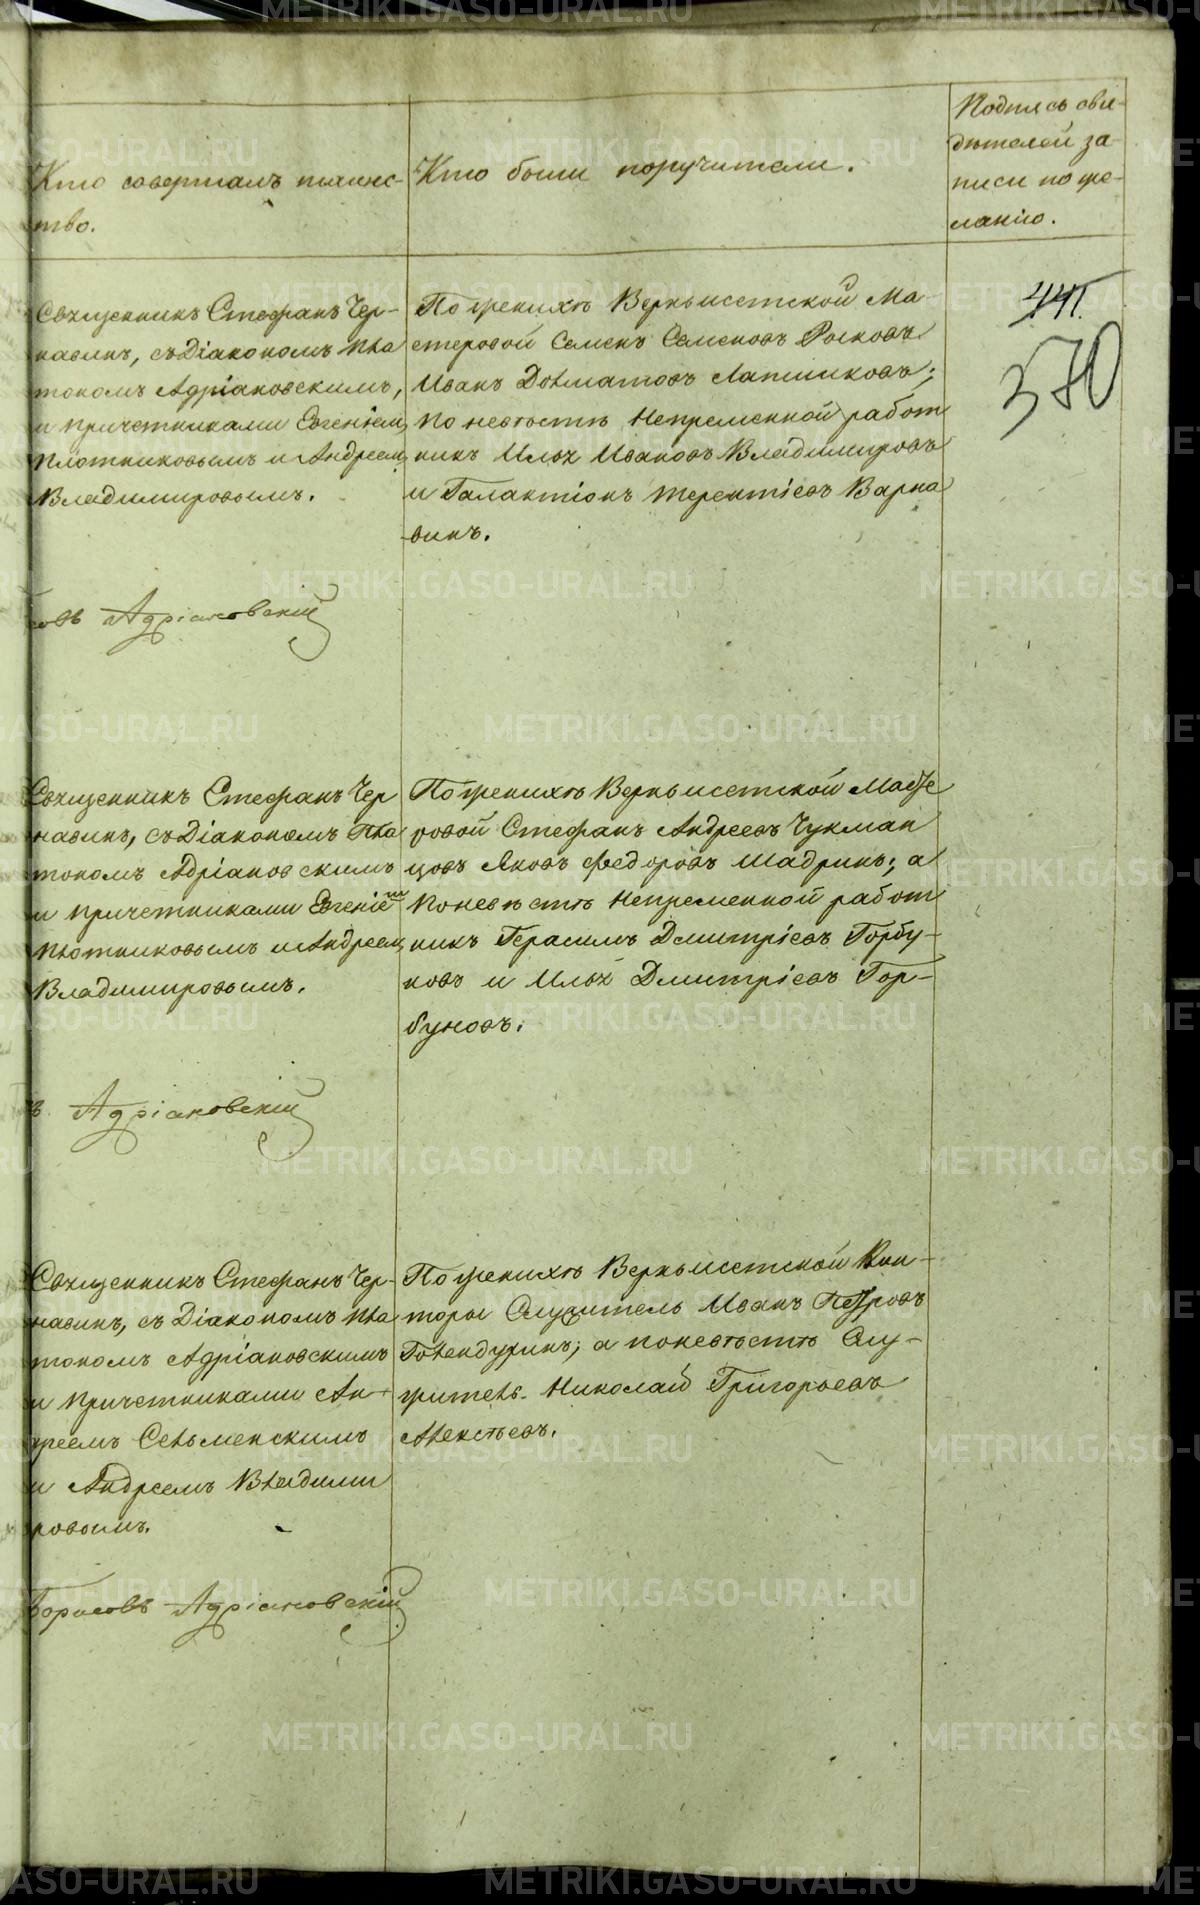 Кто совершалъ таинс-
тво.
Кто были поручители.
Подпись сви-
дѣтелей за-
писи по же-
ланію.
441.
370
Священникъ Стефанъ Чер-
навинъ, съ Діакономъ Пла
тономъ Адріановскимъ,
и причетниками Евгеніем
Плотниковымъ и Андреем
Владимировымъ.
По женихѣ Верхъисетской Ма-
стеровой Семенъ Семеновъ
Иванъ Долматовъ Лапшиковъ;
по невѣстѣ Непременной работ
никъ Илья Ивановъ Владимировъ
и Галактіонъ Терентіевъ Варна
винъ.
Адріановскій
Священникъ Стефанъ Чер
навинъ, съ Діакономъ Пла
тономъ Адріановскимъ
и причетниками Евгеніем
Плотниковымъ и Андреем
Владимировымъ.
По женихѣ Верхъисетской Масте
ровой Стефанъ Андреевъ Чукман
цовъ Яковъ Федоровъ Шадринъ; а
по невѣстѣ Непременной работ
никъ Герасимъ Дмитріевъ Горбу-
новъ и Илья Дмитріевъ Гор-
буновъ.
Адріановскій
Священникъ Стефанъ Чер-
навинъ, съ Діакономъ Пла
тономъ Адріановскимъ
и причетниками Ан-
дреемъ Сельменскимъ
и Андреемъ Владими
ровымъ.
По женихѣ Верхъисетской Кон-
торы Служитель Иванъ Петровъ
Голендуринъ; а по невѣстѣ Слу-
житель Николай Григорьевъ
Алексѣевъ.
Борисовъ Адріановскій
METRIKI.GASO-URAL.RU